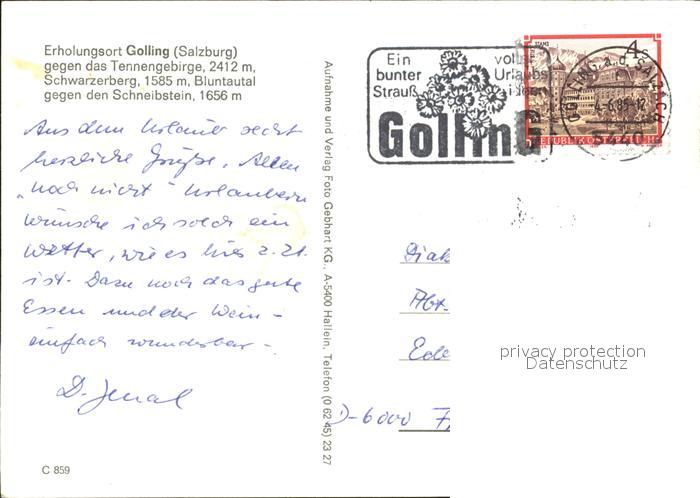 Erholungsort Golling (Salzburg)
gegen das Tennengebirge, 2412 m,
Schwarzerberg, 1585 m, Bluntautal
gegen den Schneibstein, 1656 m
Aus dem Urlaub recht
herzliche Grüße. Allen
"noch nicht" Urlaubern
wünsche ich solch ein
Wetter, wie es hier z. Zt.
ist. Dazu noch das gute
Essen und der Wein -
einfach wunderbar -
D. Jenal
C 859
Aufnahme und Verlag Foto Gebhart KG., A-5400 Hallein, Telefon (0 62 45) 23 27
Ein voller
bunter Urlaubs
Strauß ideen
Golling
STAMS
4 S
REPUBLIK ÖSTERREICH
GOLLING a.d. SALZACH
5440
Diak
Abt.
Ede
D-6000
privacy protection
Datenschutz